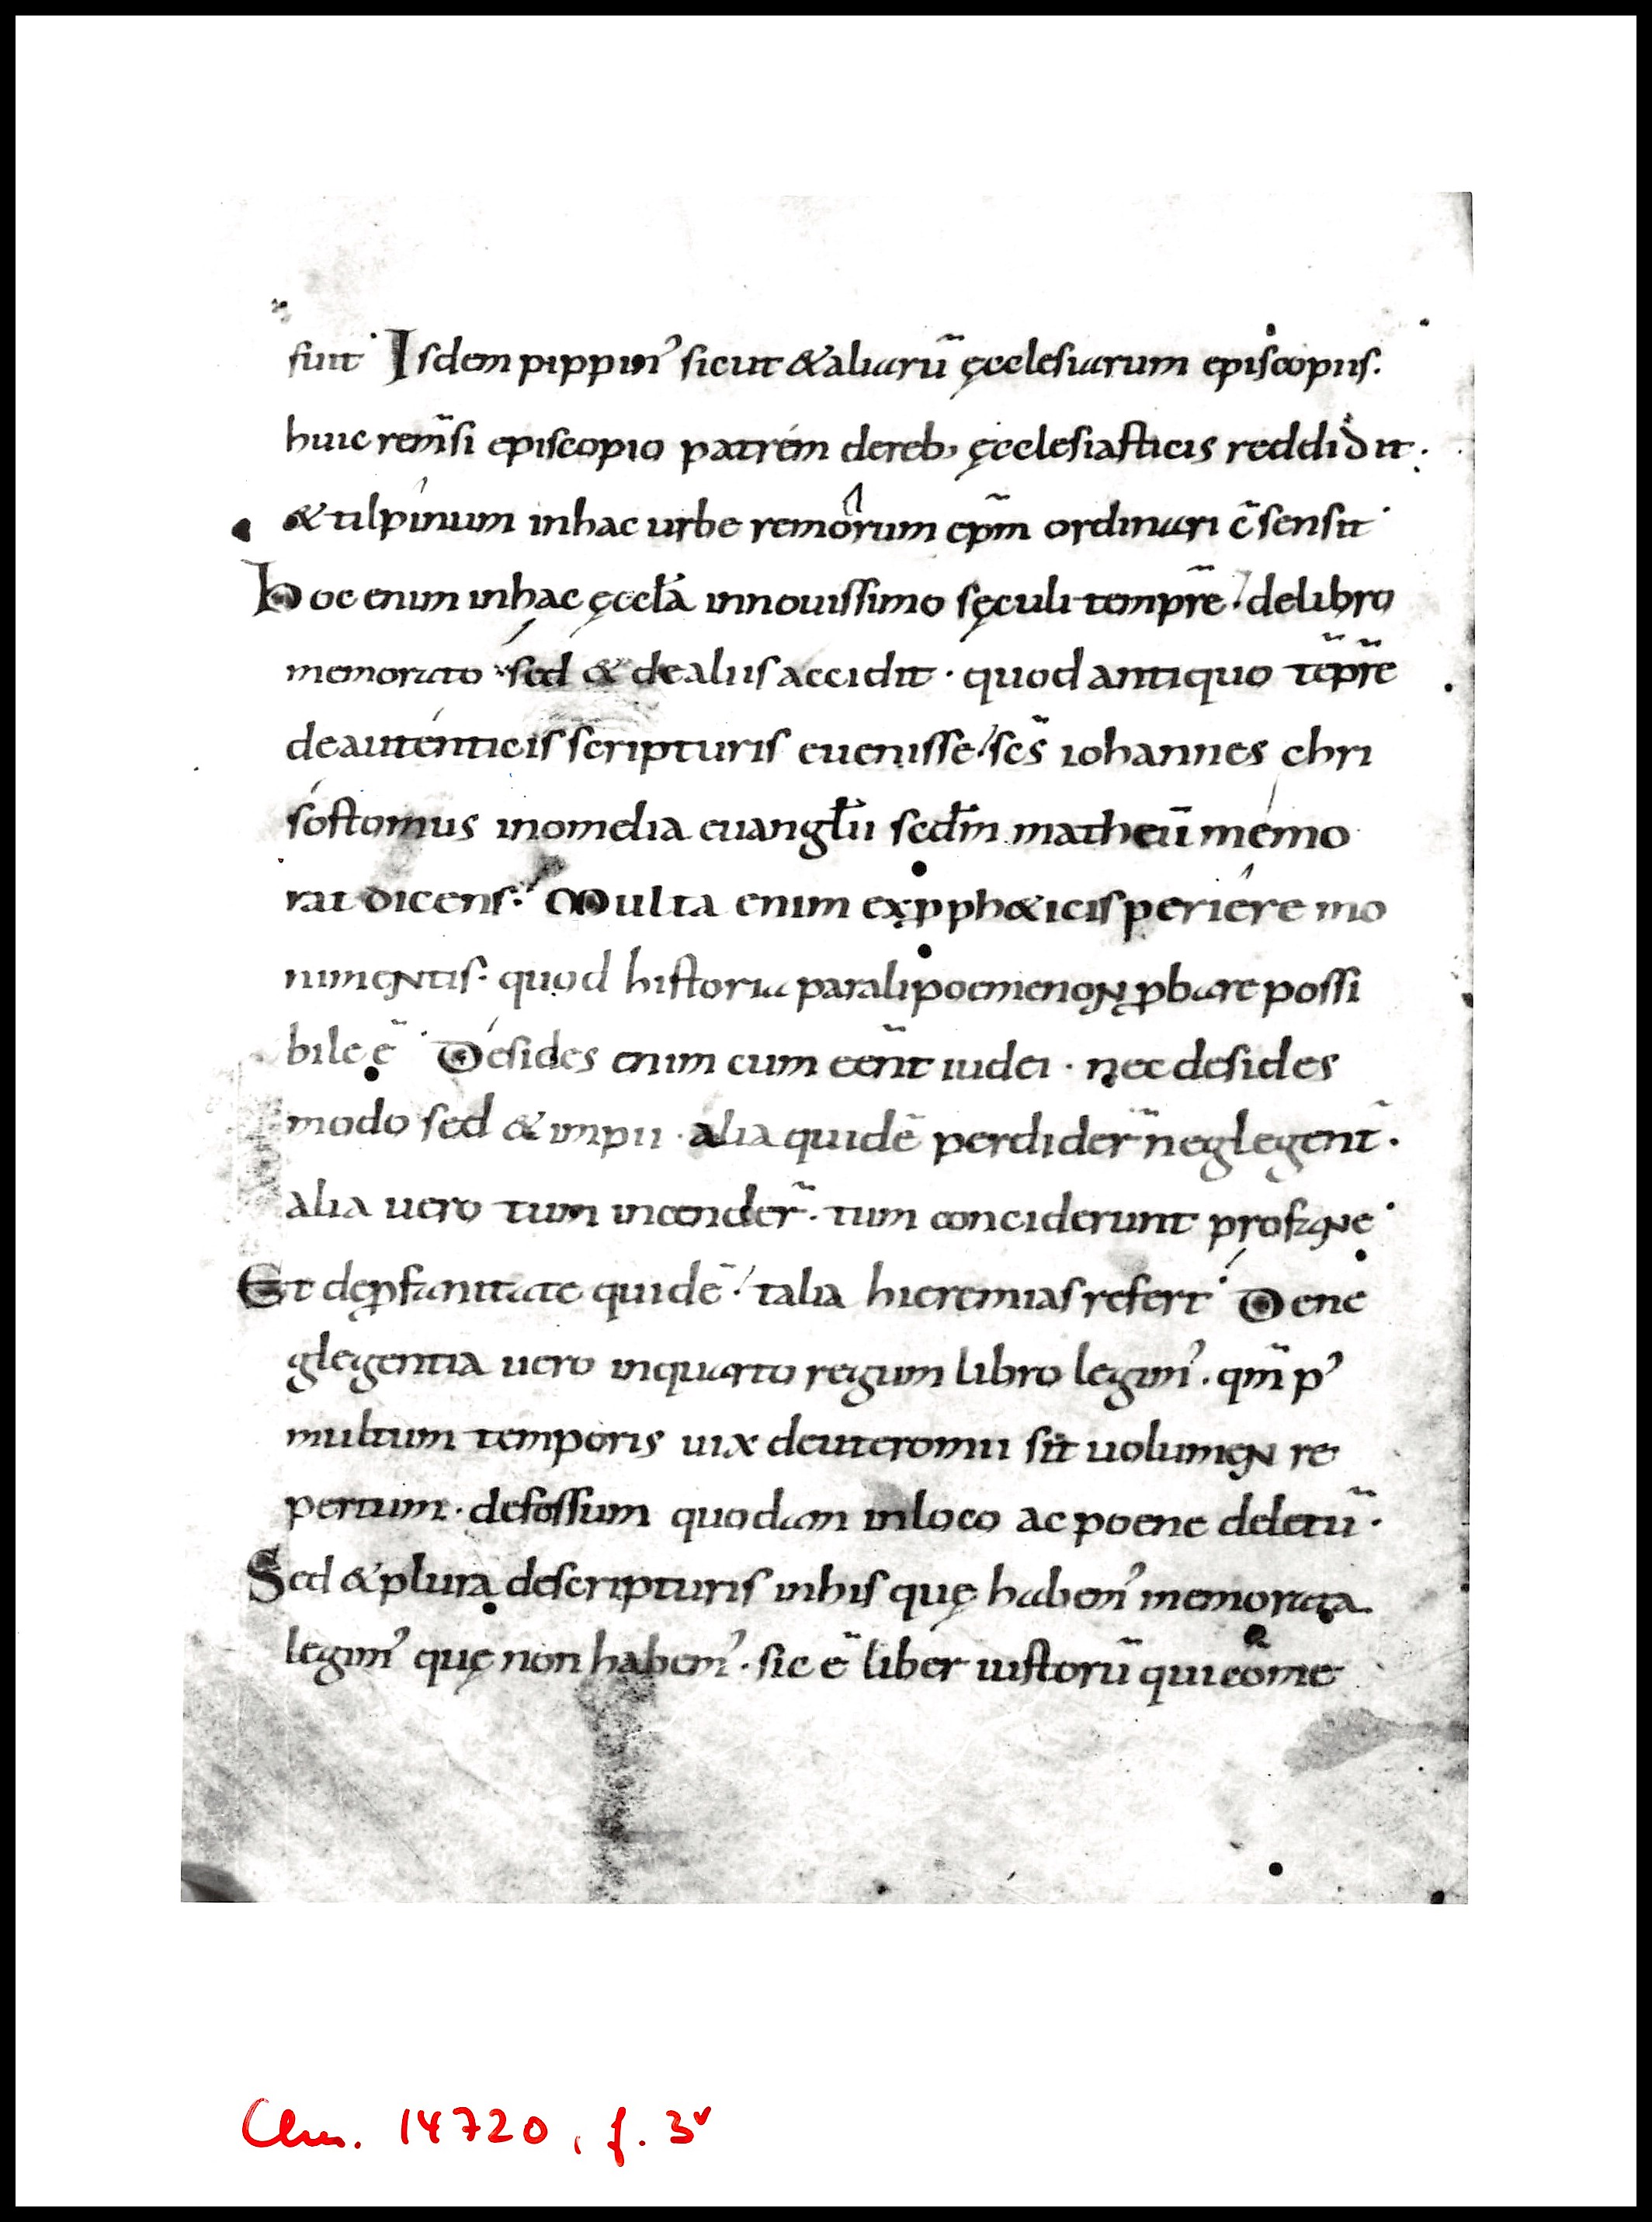 fuit· Isdem pippin᾽ sicut & aliarū ęcclesiarum episcopiis.
huic remsi episcopio patrem dereb; ęcclesiasticis reddidit.
& tilpinum inhac urbe remorum ep̄m ordinari c̄sensit·
hoc enim inhac ęccła innouissimo sęculi tempr̄e. delibro
memorato sed & dealiis accidit · quod antiquo tēpr̄e
deautenticis scripturis euenisse. sc̄s iohannes chri
sostomus inomelia euangłii secđm matheū memo
rat dicens. Multa enim exp̱ph&icis periere mo
nimentis. quod historia paralipoemenon ꝓbare possi
bile ē· Desides enim cum eēnt iudei · nec desides
modo sed & impii · alia quidē perdider̄ neglegent̄.
alia uero tum incender̄. tum conciderunt profane·
Et deꝓfanitate quidē. talia hieremias refert· Dene
glegentia uero inquarto regum libro legim᾽. qm̄ p᾽
multum temporis uix deuteromii sit uolumen re
pertum. defossum quodam inloco ac poene deletū.
Sed & plura descripturis inhis quę habem᾽ memorata
legim᾽ quę non habem᾽. sic ē liber iustorū qui cōme
Clm. 14720, f. 3v